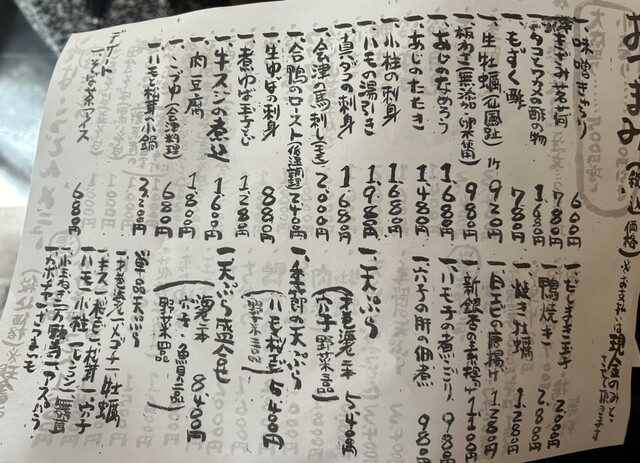 おつまみ(税込価格)※お支払いは現金のみと
一味噌きゅうり 600円
780円
一タコとワカメの酢の物 1.680円
一もずく酢 780円
一生牡蠣 1ケ 920円
一板わさ(無添加 980円
一あじのなめろう 1.680円
一あじのたたき 1.480円
一小柱の刺身 1.680円
一ハモの湯引き 1.980円
一真ダコの刺身 1.680円
一会津の馬刺し 2.000円
一合鴨のロースト(低温調理) 2.400円
一生ゆばの刺身 880円
一煮ゆば 1.280円
一牛スジの煮込 1.600円
一肉豆腐 1.800円
一こづゆ(会津料理) 680円
一ハモと松茸の小鍋 3.200円
デザート
一そば茶アイス 680円
一だしまき玉子 2.000円
一鴨焼き 2.800円
一焼き牡蠣 1.280円
一白エビの唐揚げ 1.280円
一新銀杏の素揚げ 1.100円
一ハモの子の煮こごり 980円
一穴子の肝の佃煮 980円
一天ぷら
穴子 野菜三品 5.400円
一季節の天ぷら
(ハモ 松茸 野菜三品) 5.400円
一天ぷら盛合せ
海老二本
穴子 魚貝二品
野菜四品 8.400円
単品天ぷら
一メゴチ 一牡蠣
一キス 一松茸 一穴子
一ハモ 一小柱 一レンコン
一アスパラ
一カボチャ 一さつまいも